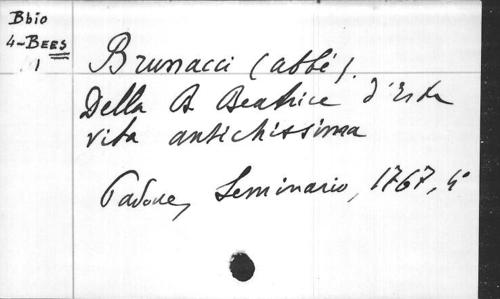 Bbio
4-BEES
1
Brunacci (abbé).
Della B. Beatrice d'Este
vita antichissima
Padoue, Seminario, 1767, 4°